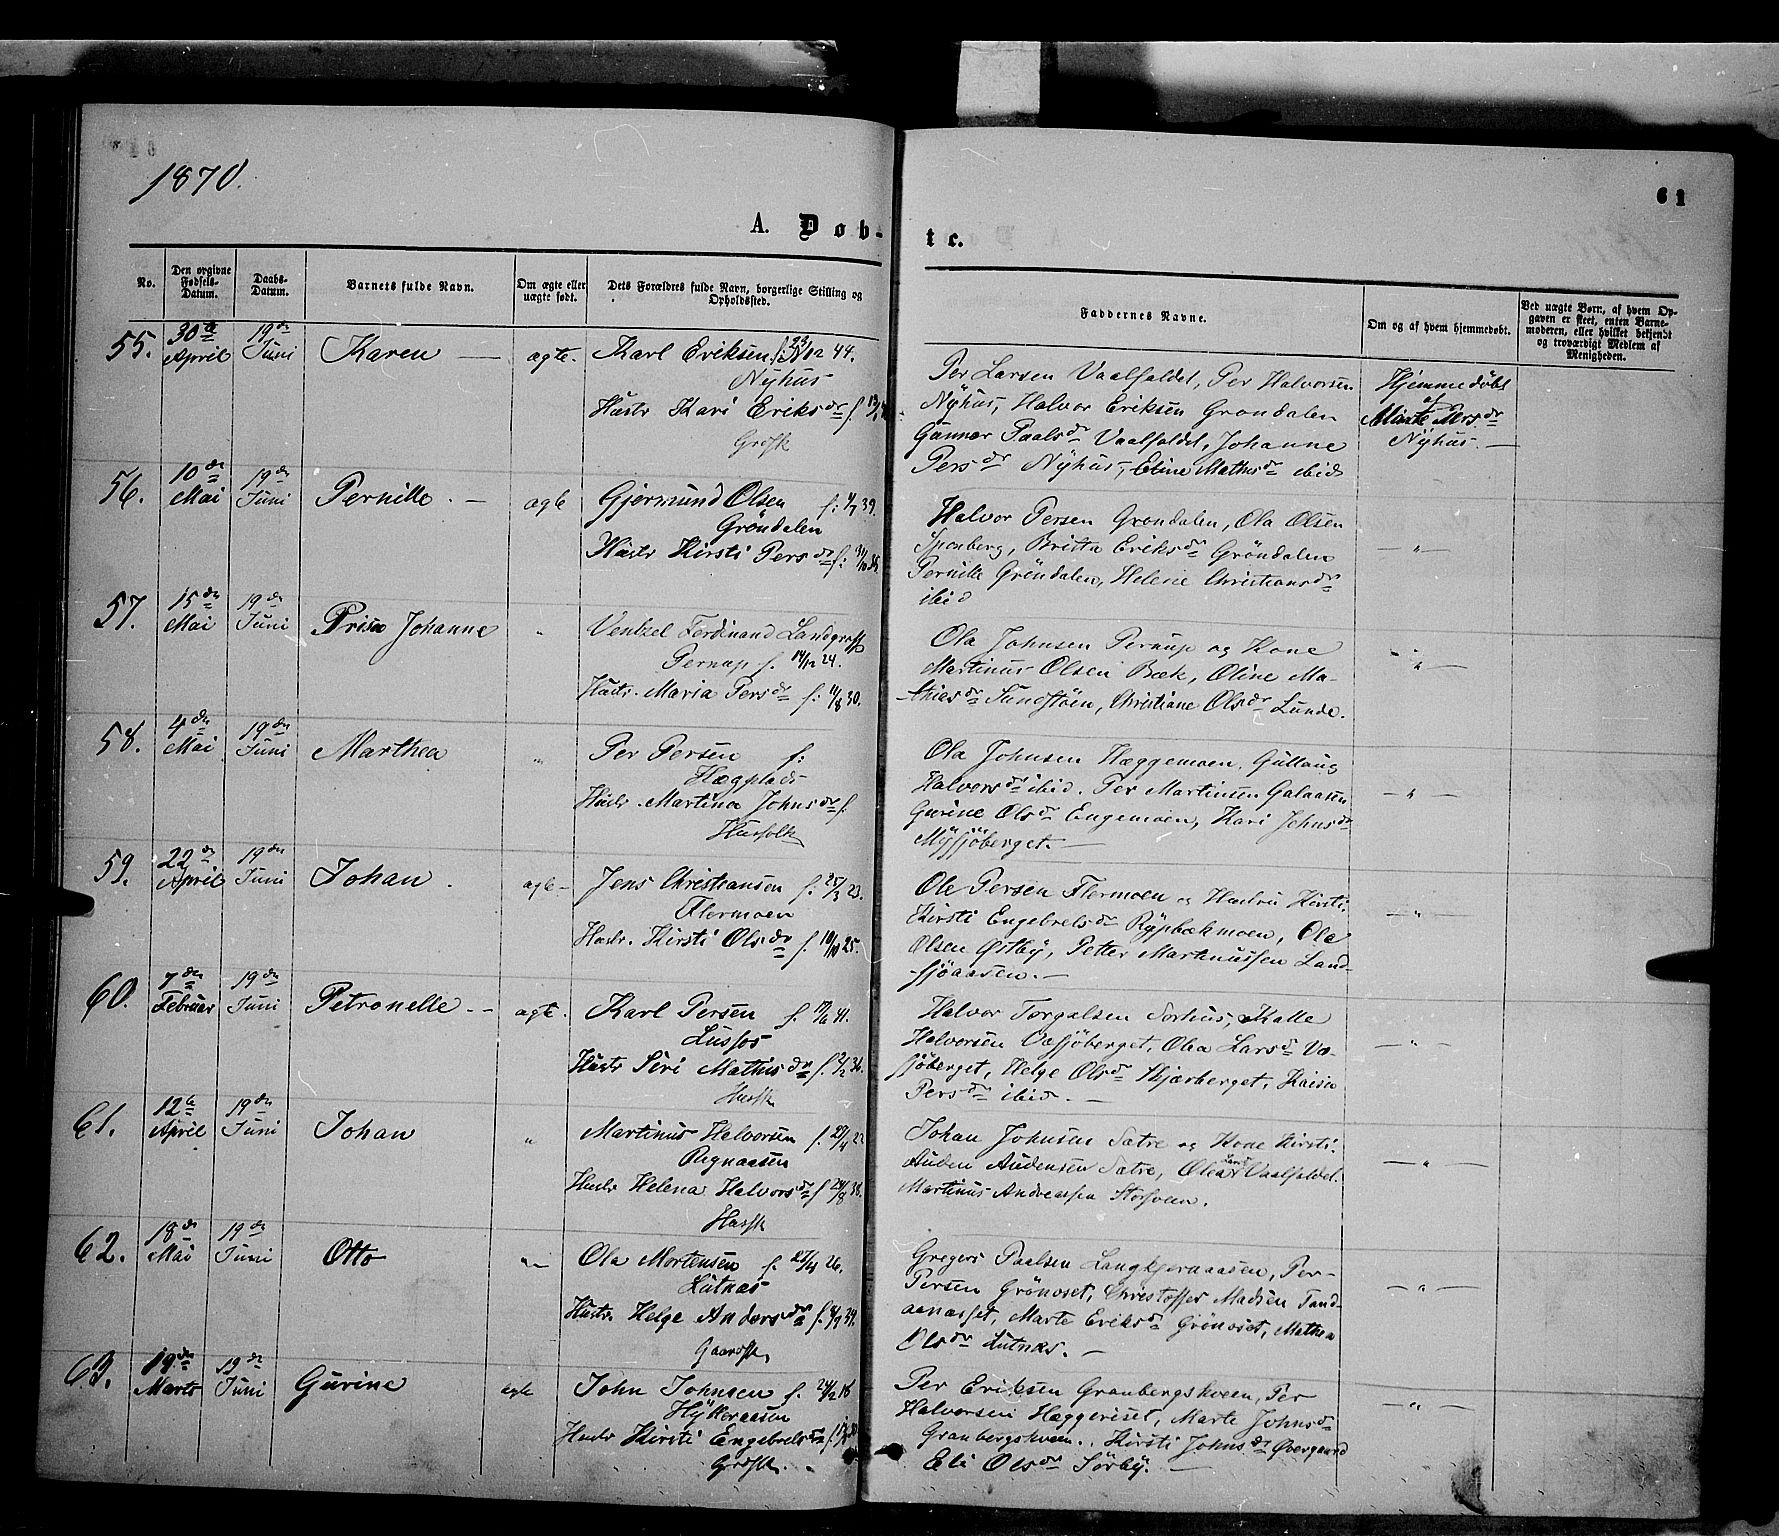 1870.
61
A. Døb-
te.
No.
Den opgivne Fødsels-Datum.
Daabs-Datum.
Barnets fulde Navn.
Om ægte eller uægte født.
Dets Forældres fulde Navn, borgerlige Stilling og Opholdssted.
Faddernes Navne.
Om og af hvem hjemmedøbt.
Ved uægte Børn, af hvem Opgaven er skeet, enten Barnemoderen, eller hvilket bekjendt og troværdigt Medlem af Menigheden.
55. 30te April 19de Juni Karen — ægte. Karl Eriksen f. 23 Nov 44.
Nyhus
Hustr Kari Eriksdr f.
Per Larsen Vaalfaldet, Per Halvorsen
Nyhus, Halvor Eriksen Grøndalen
Gunnor Paalsdr Vaalfaldet, Johanne
Persdr Nyhus, Eline Mathisdr ibid
Hjemmedøbt
af
Marte
Nyhus. —
56. 10de Mai 19de Juni Pernille. — ægte Gjermund Olsen f: 4/7 39.
Grøndalen
Hustr Kirsti Persdr f:
Halvor Persen Grøndalen, Ola Olsen
Britta Eriksdr Grøndalen
Pernille Grøndalen, Helene Christiansdr
ibid
— " —
57. 15de Mai 19de Juni Prisa Johanne " Ventzel Ferdinand Landgraff
Pernap f. 14/12 24.
Hustr. Maria Persdr f: 11/8 30.
Ola Johnsen Pernup og Kone
Martinus Olsen Bæk, Oline Ma-
thiasdr Sundstøen, Christiane Olsdr Lunde.
— " —
58. 4de Mai 19de Juni Marthea " Per Persen f:
Hæggplads
Hustr. Martina Johnsdr f.
Husfolk
Ola Johnsen Hæggemoen, Gullaug
Halvorsdr ibid. Per Martinsen Galaasen
Gurine Olsdr Engemoen, Kari Johnsdr
Mysjøberget. —
— " —
59. 22de April 19de Juni Johan. ægte — Jens Christiansen f: 25/3 23.
Flermoen
Hustr. Kirsti Olsdr f. 10/10 25.
Ole Persen Flermoen og Hustru Kirsti,
Kirsti Engebretsdr Rypbækmoen, Ola
Olsen Østby, Petter Martinussen Land-
sjøaasen. —
— " —
60. 7de Februar 19de Juni Petronelle. — ægte. Karl Persen f. 41.
Lusfos
Hustr Siri Mathisdr f.
Husfk
Halvor Torgalsen Sorhus, Kalle
Halvorsen Væsjøberget, Olea Larsdr Væ-
sjøberget, Helge Olsdr Kjærberget,
Persdr ibid. —
— " —
61. 12te April 19de Juni Johan " Martinus Halvorsen f. 29/4
Hustr Helena Halvorsdr f
Husfk
Johan Johnsen Sætre og Kone Kirsti.
Auden Audensen Sætre, Olea Vaalfaldet.
Martinus Andreassen Storsveen.
— " —
62. 18de Mai 19de Juni Otto " Ola Mortensen f. 27/4 26.
Lutnæs
Hustr. Helge Andersdr f.
Gaardfk.
Gregers Paalsen Langkjernaasen, Per
Persen Grønoset, Christoffer Madsen Tand-
aanæsset, Marte Eriksdr Grønoset, Mathea
Olsdr Lutnæs. —
— " —
63. 19de Marts 19de Juni Gurine ægte John Johnsen f. 24/2 18
Hykkeraasen
Hustr Kirsti Engebretsdr f.
Per Eriksen Granbergskveen, Per
Halvorsen Hæggeriset, Marte Johnsdr
Granbergskveen. Kirsti Johnsdr Øvergaard
Eli Olsdr Sørby. —
— " —